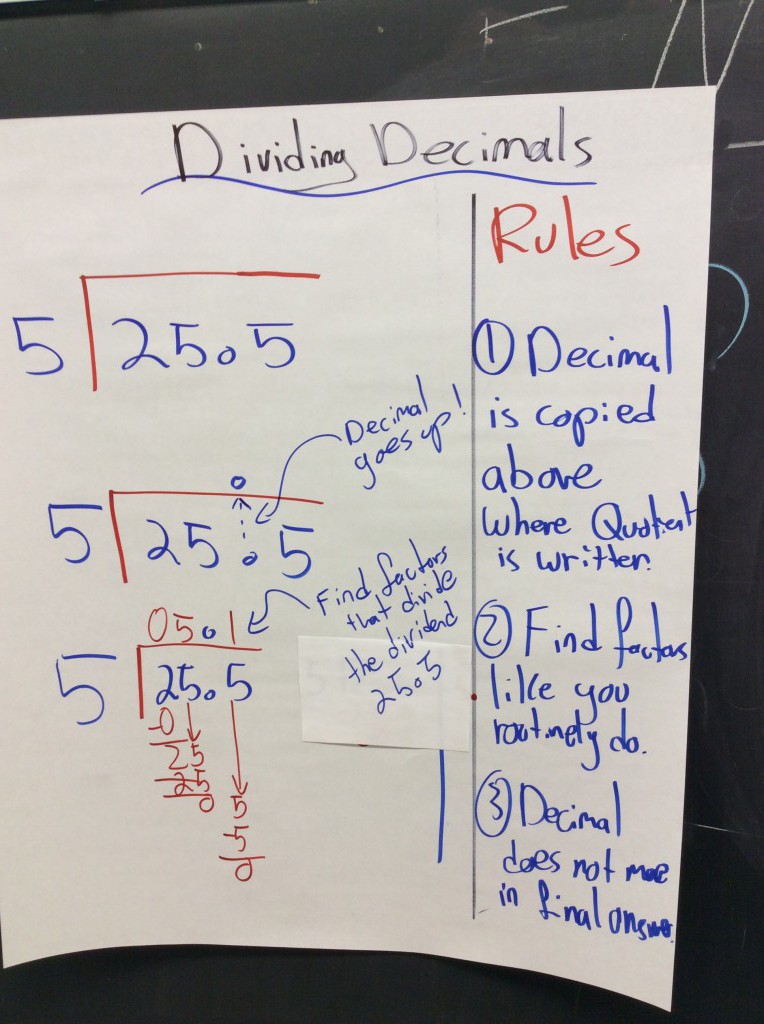 Dividing Decimals
5 25.5
Decimal
goes up!
5 25.5
Find factors
that divide
the dividend
25.5
05.1
5 25.5
Rules
① Decimal
is copied
above
where Quotient
is written.
② Find factors
like you
routinely do.
③ Decimal
does not move
in final answer.